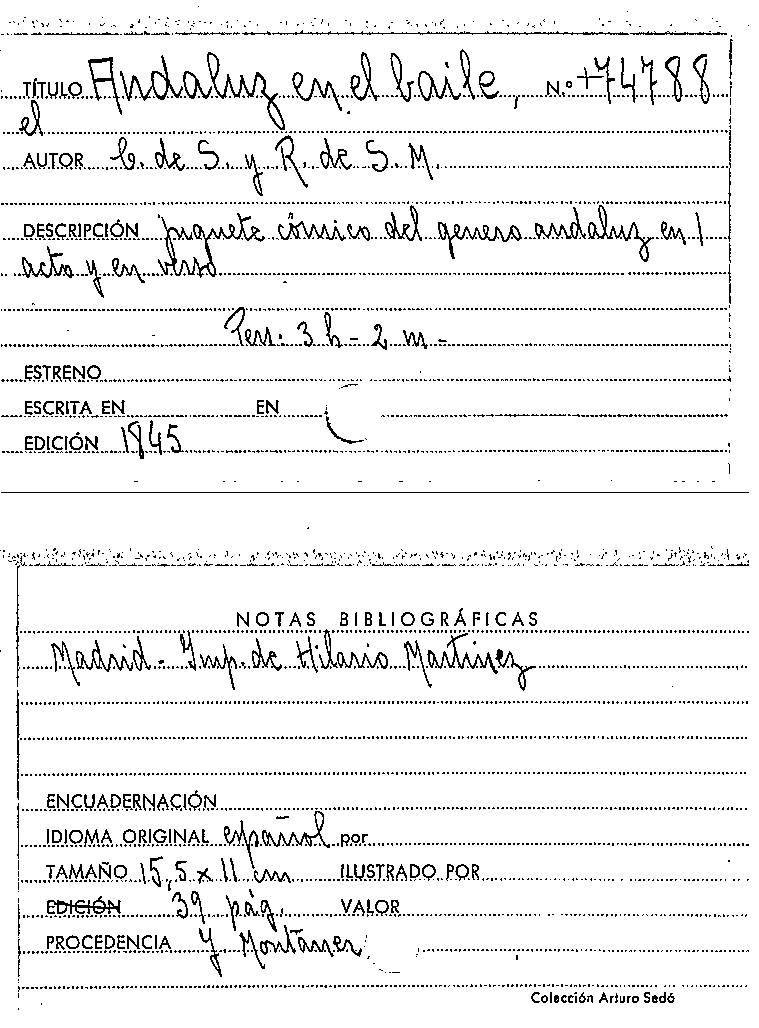 TÍTULO Andaluz en el baile, N.º +74788
el
AUTOR C. de S. y R. de S. M.
DESCRIPCIÓN juguete cómico del genero andaluz en 1
acto y en verso
Pers: 3 h - 2 m -
ESTRENO
ESCRITA EN EN
EDICIÓN 1845
NOTAS BIBLIOGRÁFICAS
Madrid - Imp. de Hilario Martinez
ENCUADERNACIÓN
IDIOMA ORIGINAL español por
TAMAÑO 15,5 x 11 cm ILUSTRADO POR
EDICIÓN 39 pág. VALOR
PROCEDENCIA Y. Montaner
Colección Arturo Sedó